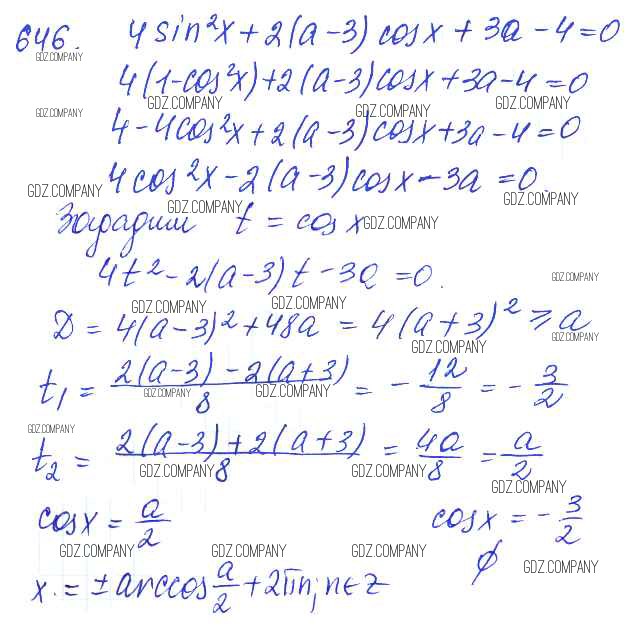 646. 4 sin²x + 2(a-3) cosx + 3a - 4 = 0
GDZ.COMPANY
4(1-cos²x)+2(a-3)cosx+3a-4=0
GDZ.COMPANY GDZ.COMPANY GDZ.COMPANY GDZ.COMPANY
4-4cos²x+2(a-3)cosx+3a-4=0
4cos²x-2(a-3)cosx-3a=0
GDZ.COMPANY GDZ.COMPANY GDZ.COMPANY
t = cos x GDZ.COMPANY
4t²-2(a-3)t-3a=0.
GDZ.COMPANY
GDZ.COMPANY GDZ.COMPANY
D = 4(a-3)²+48a = 4(a+3)² ≥ a
GDZ.COMPANY GDZ.COMPANY
t₁ = (2(a-3)-2(a+3))/8 = -12/8 = -3/2
GDZ.COMPANY GDZ.COMPANY
GDZ.COMPANY
t₂ = (2(a-3)+2(a+3))/8 = 4a/8 = a/2
GDZ.COMPANY GDZ.COMPANY GDZ.COMPANY
cosx = a/2 cosx = -3/2
GDZ.COMPANY GDZ.COMPANY GDZ.COMPANY
∅ GDZ.COMPANY
x = ± arccos a/2 + 2πn; n∈z